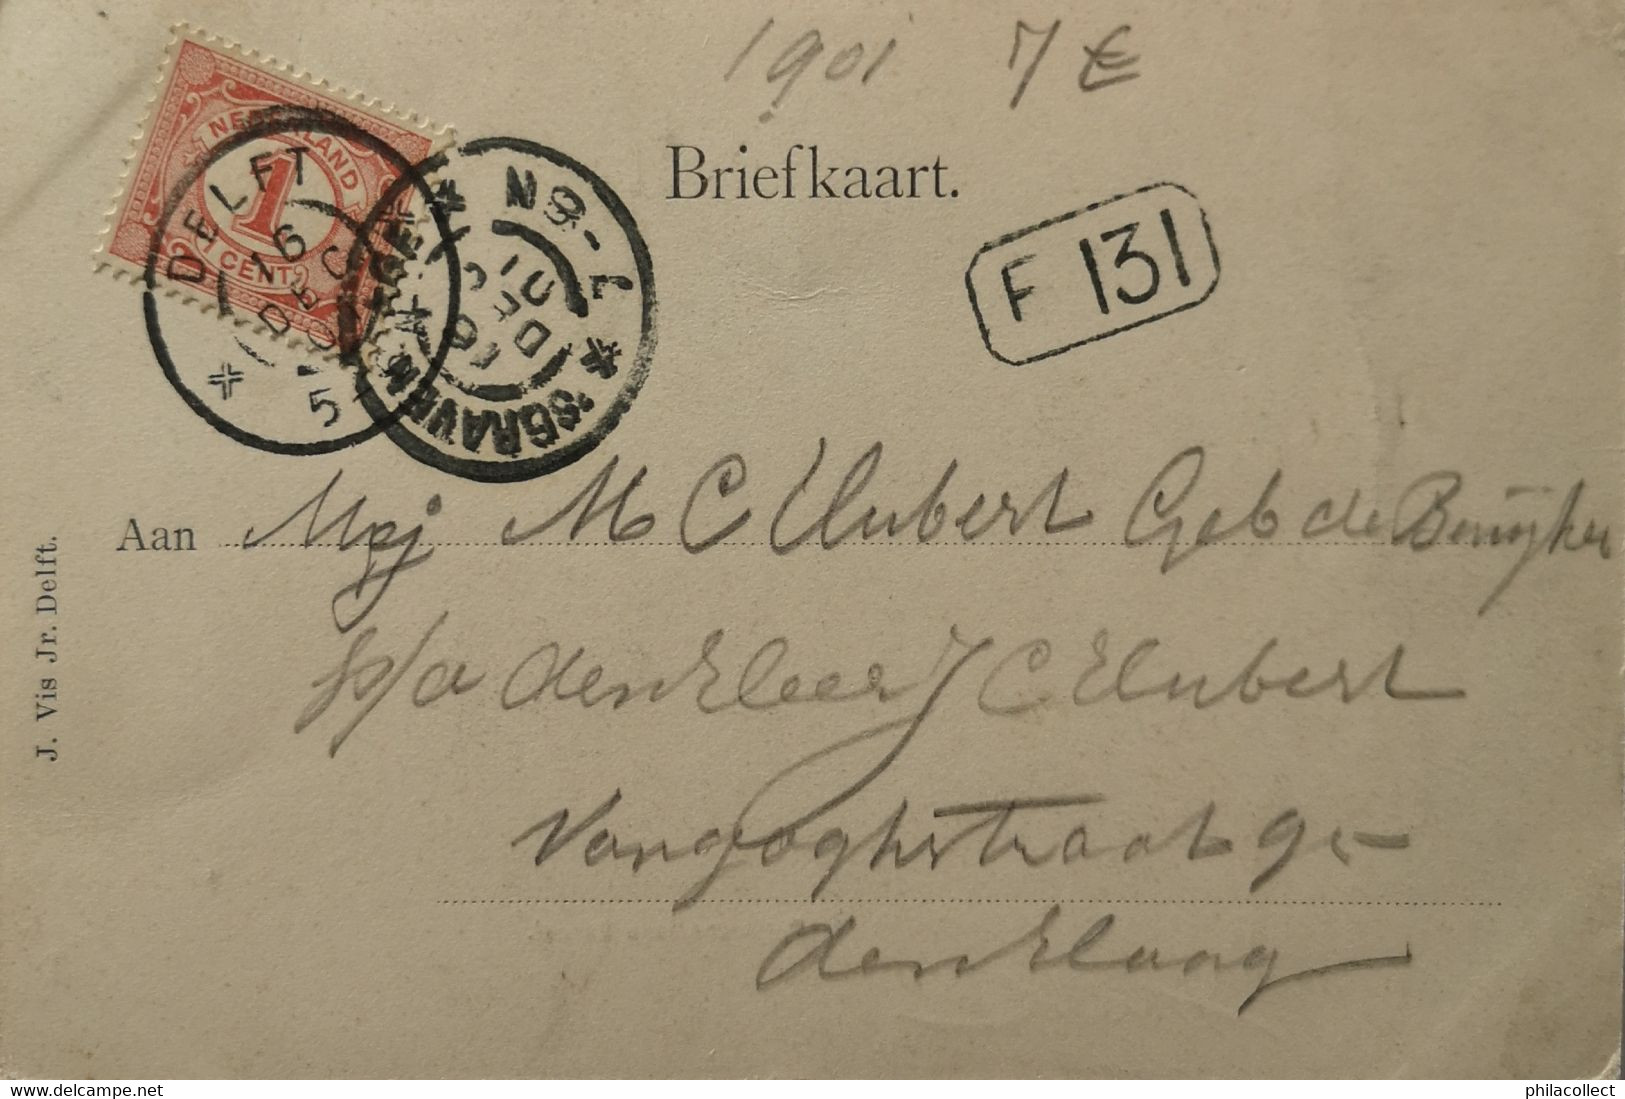 1901 7 €
NEDERLAND
1
1 CENT
DELFT
16 DEC
5
'SGRAVENHAGE
16 DEC 01
7-8N
Briefkaart.
F 131
Aan Mej M C Hubert Geb de Bruijker
p/a den Heer J C Hubert
Vangoghstraat 95
den Haag
J. Vis Jr. Delft.
delcampe.net
philacollect